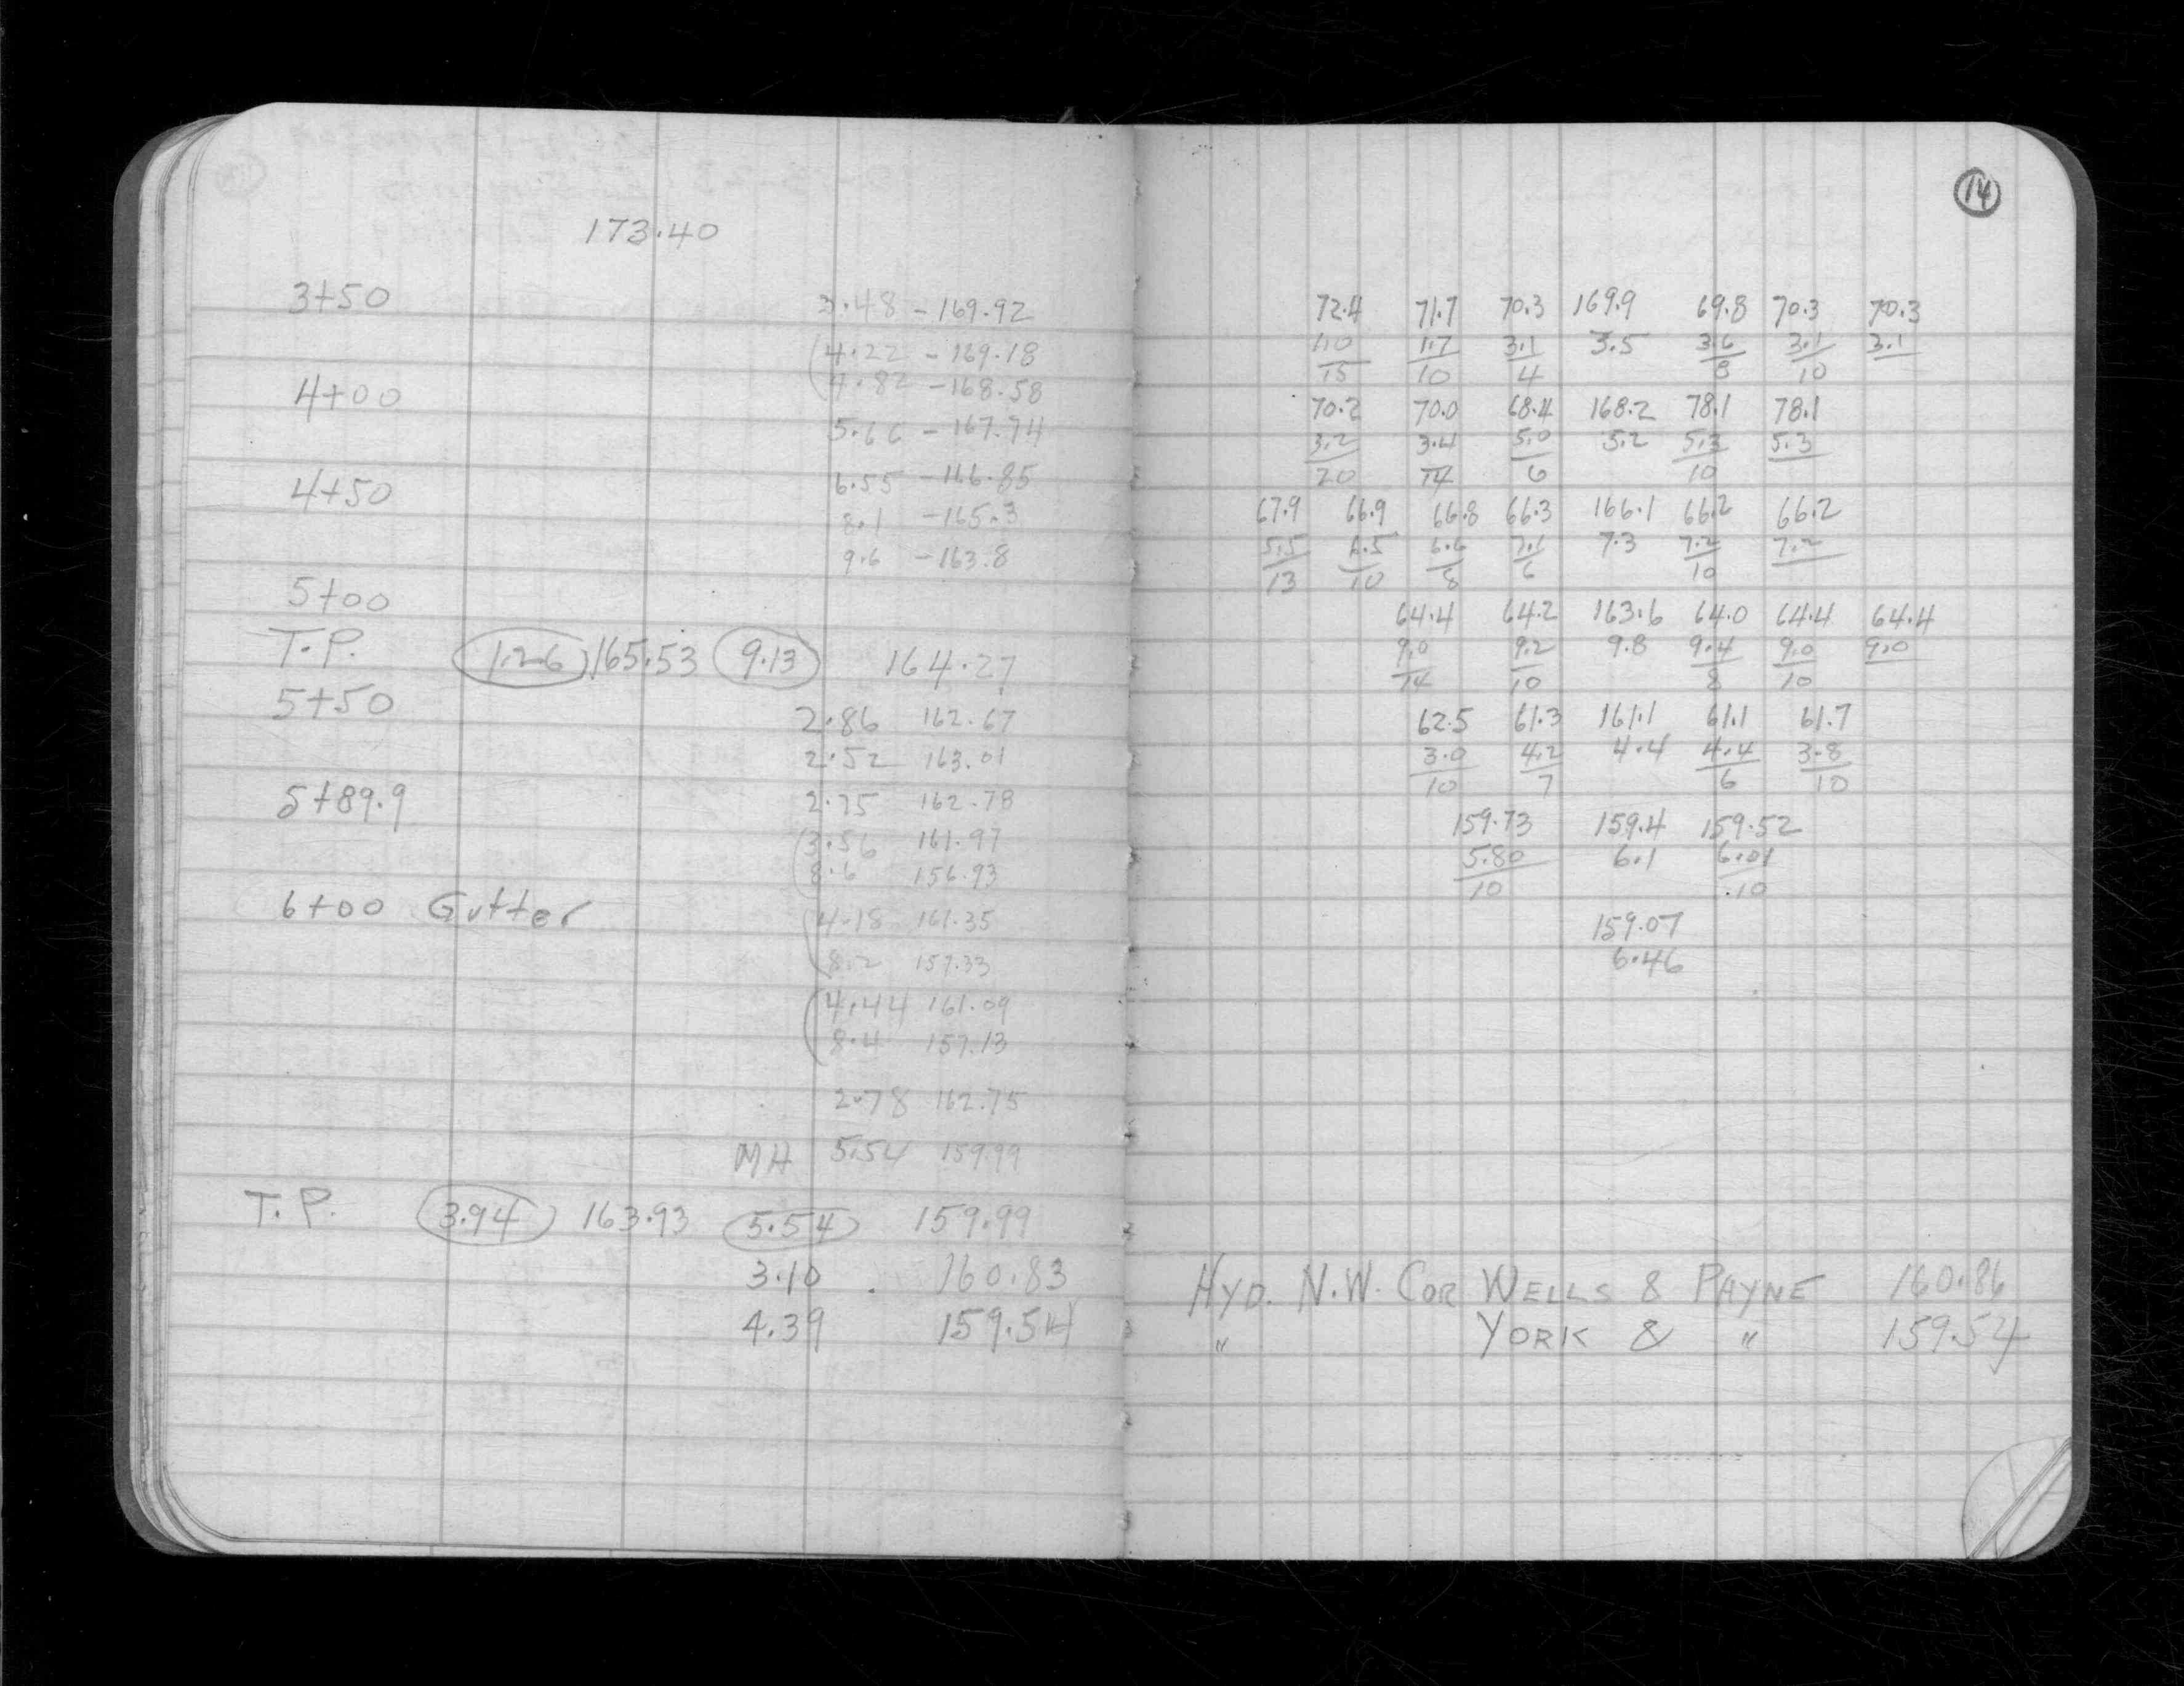 173.40
3+50
3.48 - 169.92
4.22 - 169.18
4+00
4.82 - 168.58
5.66 - 167.74
4+50
6.55 - 166.85
8.1 - 165.3
9.6 - 163.8
5+00
T.P. 1.26 165.53 9.13 164.27
5+50
2.86 162.67
2.52 163.01
5+89.9
2.75 162.78
3.56 161.97
8.6 156.93
6+00 Gutter
4.18 161.35
8.2 157.33
4.44 161.09
8.4 157.13
2.78 162.75
MH 5.54 159.99
T.P. 3.94 163.93 5.54 159.99
3.10 160.83
4.39 159.54
14
72.4 71.7 70.3 169.9 69.8 70.3 70.3
1.7 3.1 3.5 3.6 3.1 3.1
15 10 4 8 10
70.2 70.0 68.4 168.2 78.1 78.1
3.2 3.4 5.0 5.2 5.3 5.3
20 14 6 10
67.9 66.9 66.8 66.3 166.1 66.2 66.2
5.5 6.5 6.6 7.1 7.3 7.2 7.2
13 10 8 6 10
64.4 64.2 163.6 64.0 64.4 64.4
9.0 9.2 9.8 9.4 9.0 9.0
14 10 8 10
62.5 61.3 161.1 61.1 61.7
3.0 4.2 4.4 4.4 3.8
10 7 6 10
159.73 159.4 159.52
5.80 6.1 6.01
10 10
159.07
6.46
HYD. N.W. COR WELLS & PAYNE 160.86
" YORK & " 159.54